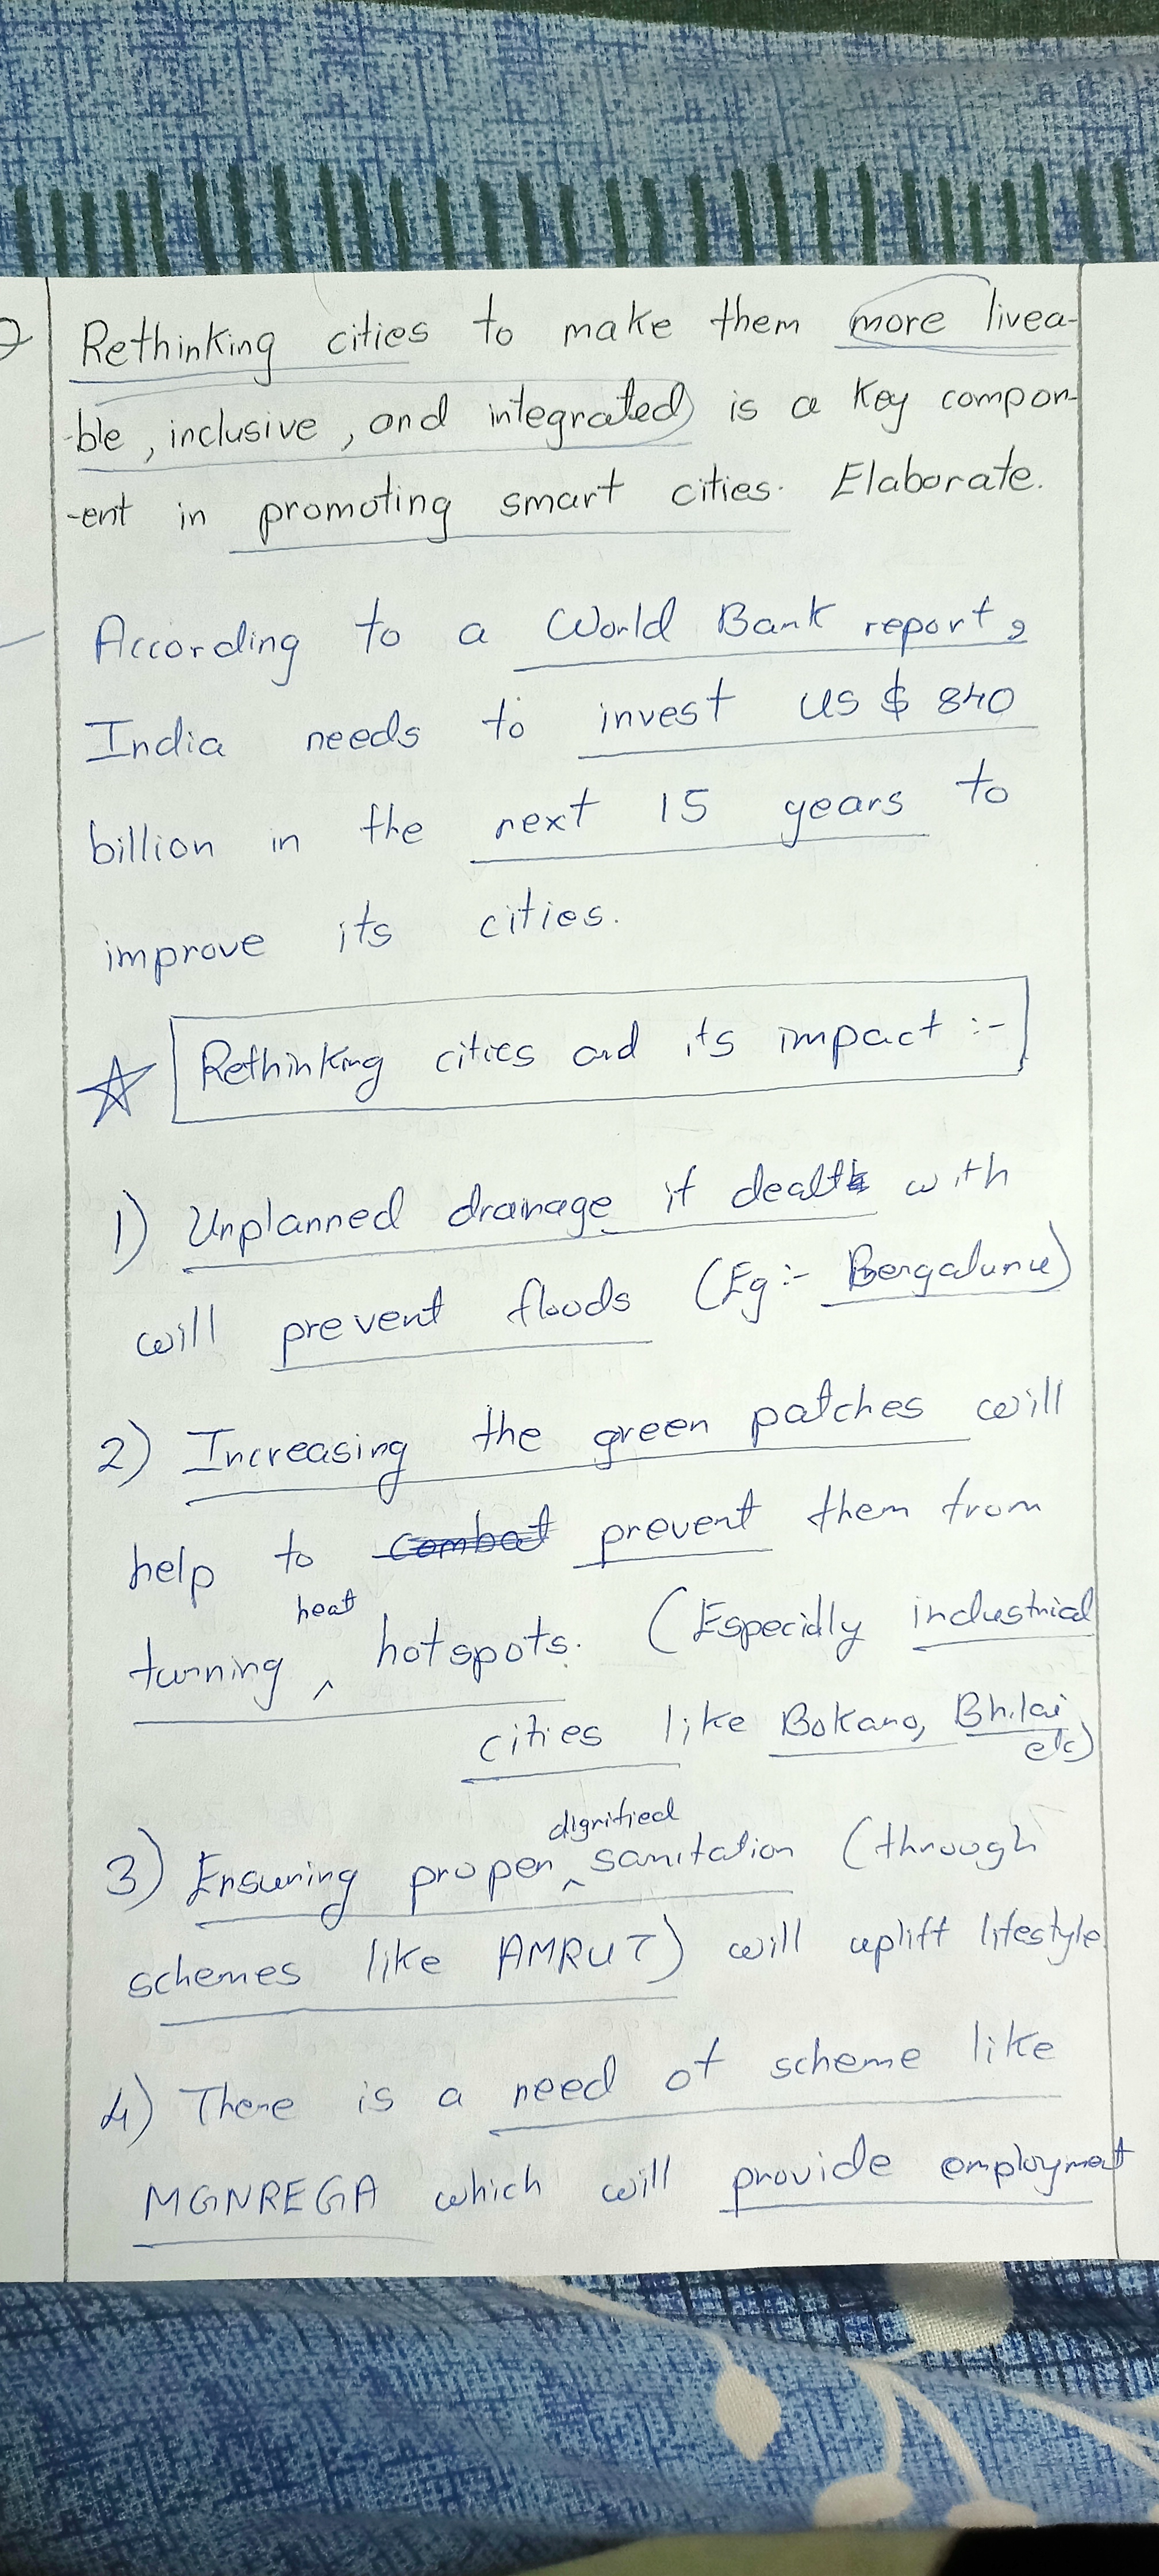 Rethinking cities to make them more livea-
-ble, inclusive, and integrated is a key compon-
-ent in promoting smart cities. Elaborate.
According to a World Bank report,
India needs to invest US $ 840
billion in the next 15 years to
improve its cities.
Rethinking cities and its impact :-
1) Unplanned drainage if dealt with
will prevent floods (Eg :- Bengaluru)
2) Increasing the green patches will
help to combat prevent them from
turning heat hotspots. (Especially industrial
cities like Bokaro, Bhilai etc)
3) Ensuring proper dignified sanitation (through
schemes like AMRUT) will uplift lifestyle.
4) There is a need of scheme like
MGNREGA which will provide employment